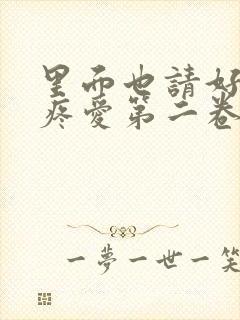 里而也請好
疼愛第二卷
一夢一世一笑